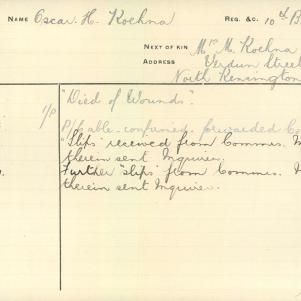 NAME Oscar. H. Koehna REG. &C. 10th B
NEXT OF KIN Mrs M. Koehna
ADDRESS Verdun Street
North Kensington
"Died of Wounds".
1/P P/Cable confirmed forwarded
"Slips" received from Commrs.
therein sent Inquirer.
Further "slips" from Commrs.
therein sent Inquirer.